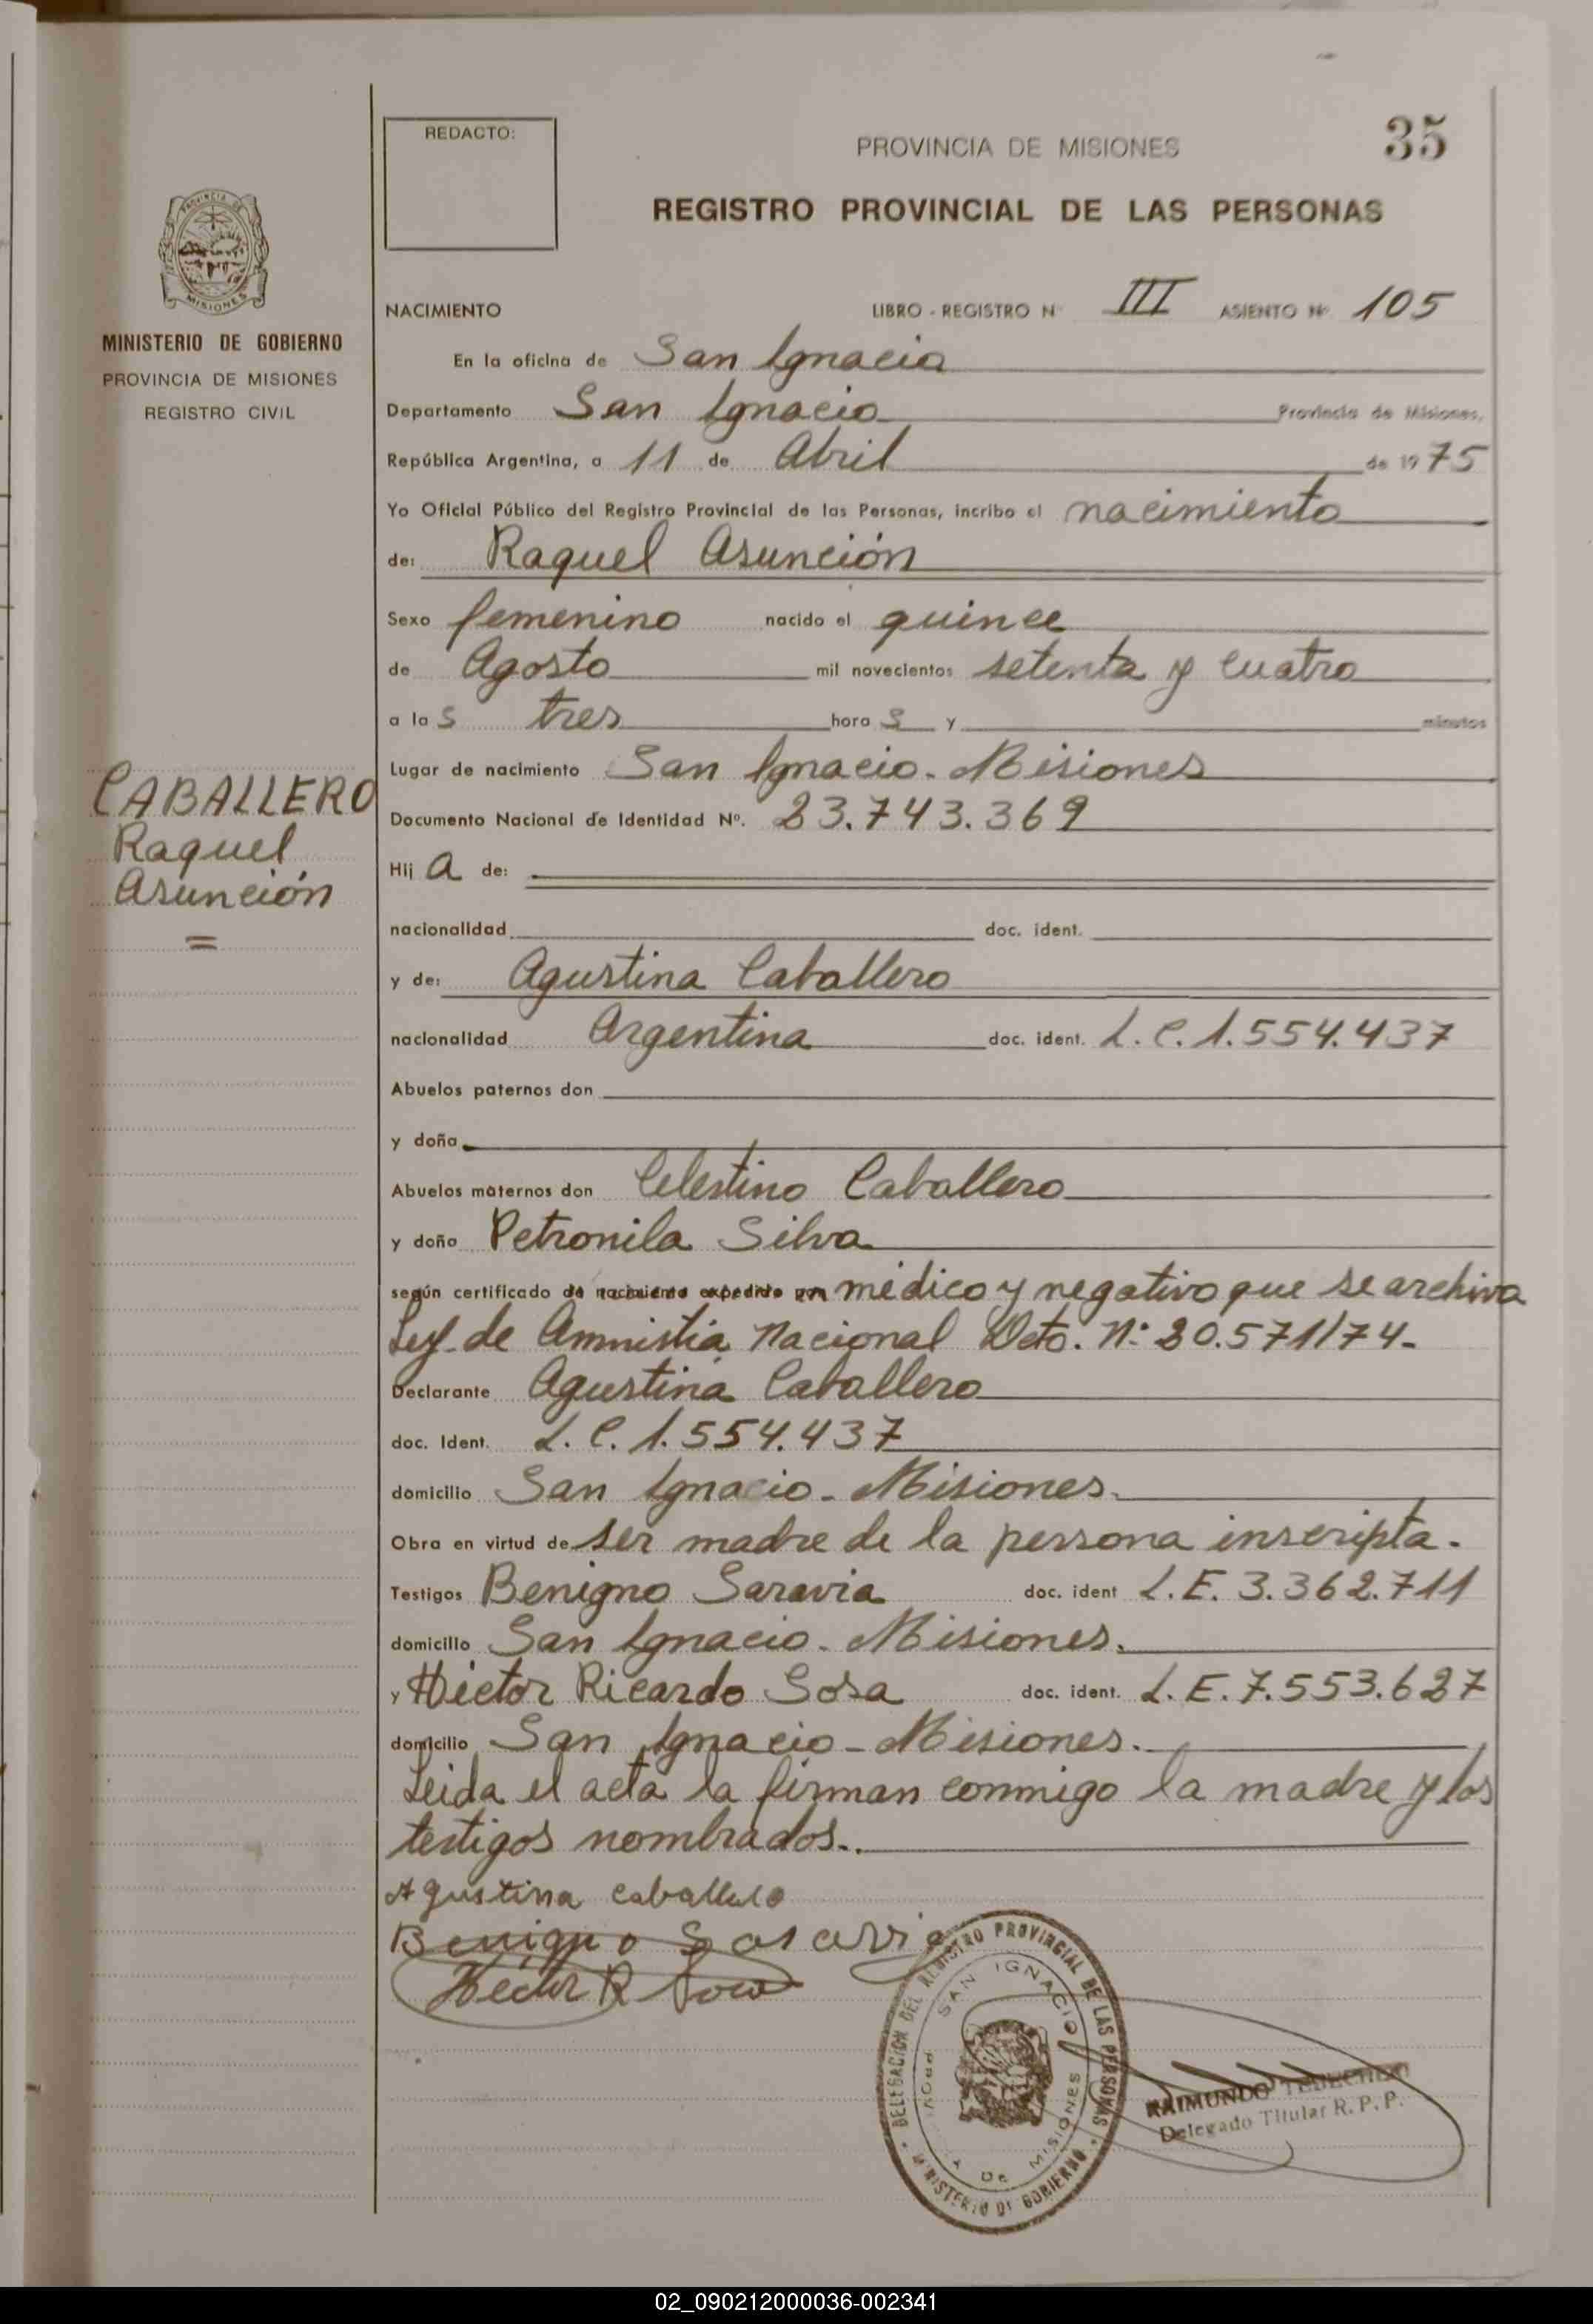 35
REDACTO:
PROVINCIA DE MISIONES
REGISTRO PROVINCIAL DE LAS PERSONAS
PROVINCIA DE
MISIONES
MINISTERIO DE GOBIERNO
PROVINCIA DE MISIONES
REGISTRO CIVIL
NACIMIENTO LIBRO - REGISTRO N° III ASIENTO N° 105
En la oficina de San Ignacio
Departamento San Ignacio Provincia de Misiones,
República Argentina, a 11 de Abril de 1975
Yo Oficial Público del Registro Provincial de las Personas, incribo el nacimiento
de: Raquel Asunción
Sexo femenino nacido el quince
de Agosto mil novecientos setenta y cuatro
a las tres horas y minutos
Lugar de nacimiento San Ignacio. Misiones
CABALLERO
Raquel
Asunción
=
Documento Nacional de Identidad Nº. 23.743.369
Hija de:
nacionalidad doc. ident.
y de: Agustina Caballero
nacionalidad Argentina doc. ident. L.C. 1.554.437
Abuelos paternos don
y doña
Abuelos maternos don Celestino Caballero
y doña Petronila Silva
según certificado de nacimiento expedido por médico y negativo que se archiva
Ley de Amnistía Nacional Dcto. N° 20.571/74-
Declarante Agustina Caballero
doc. Ident. L.C. 1.554.437
domicilio San Ignacio - Misiones.
Obra en virtud de ser madre de la persona inscripta.
Testigos Benigno Saravia doc. ident L.E. 3.362.711
domicilio San Ignacio. Misiones.
y Héctor Ricardo Sosa doc. ident. L.E. 7.553.627
domicilio San Ignacio - Misiones.
Leida el acta la firman conmigo la madre y los
testigos nombrados.
Agustina caballero
Benigno Sararvia
Héctor R Sosa
DELEGACION DEL REGISTRO PROVINCIAL DE LAS PERSONAS
SAN IGNACIO
PROV. DE MISIONES
MINISTERIO DE GOBIERNO
RAIMUNDO
Delegado Titular R.P.P.
02_090212000036-002341